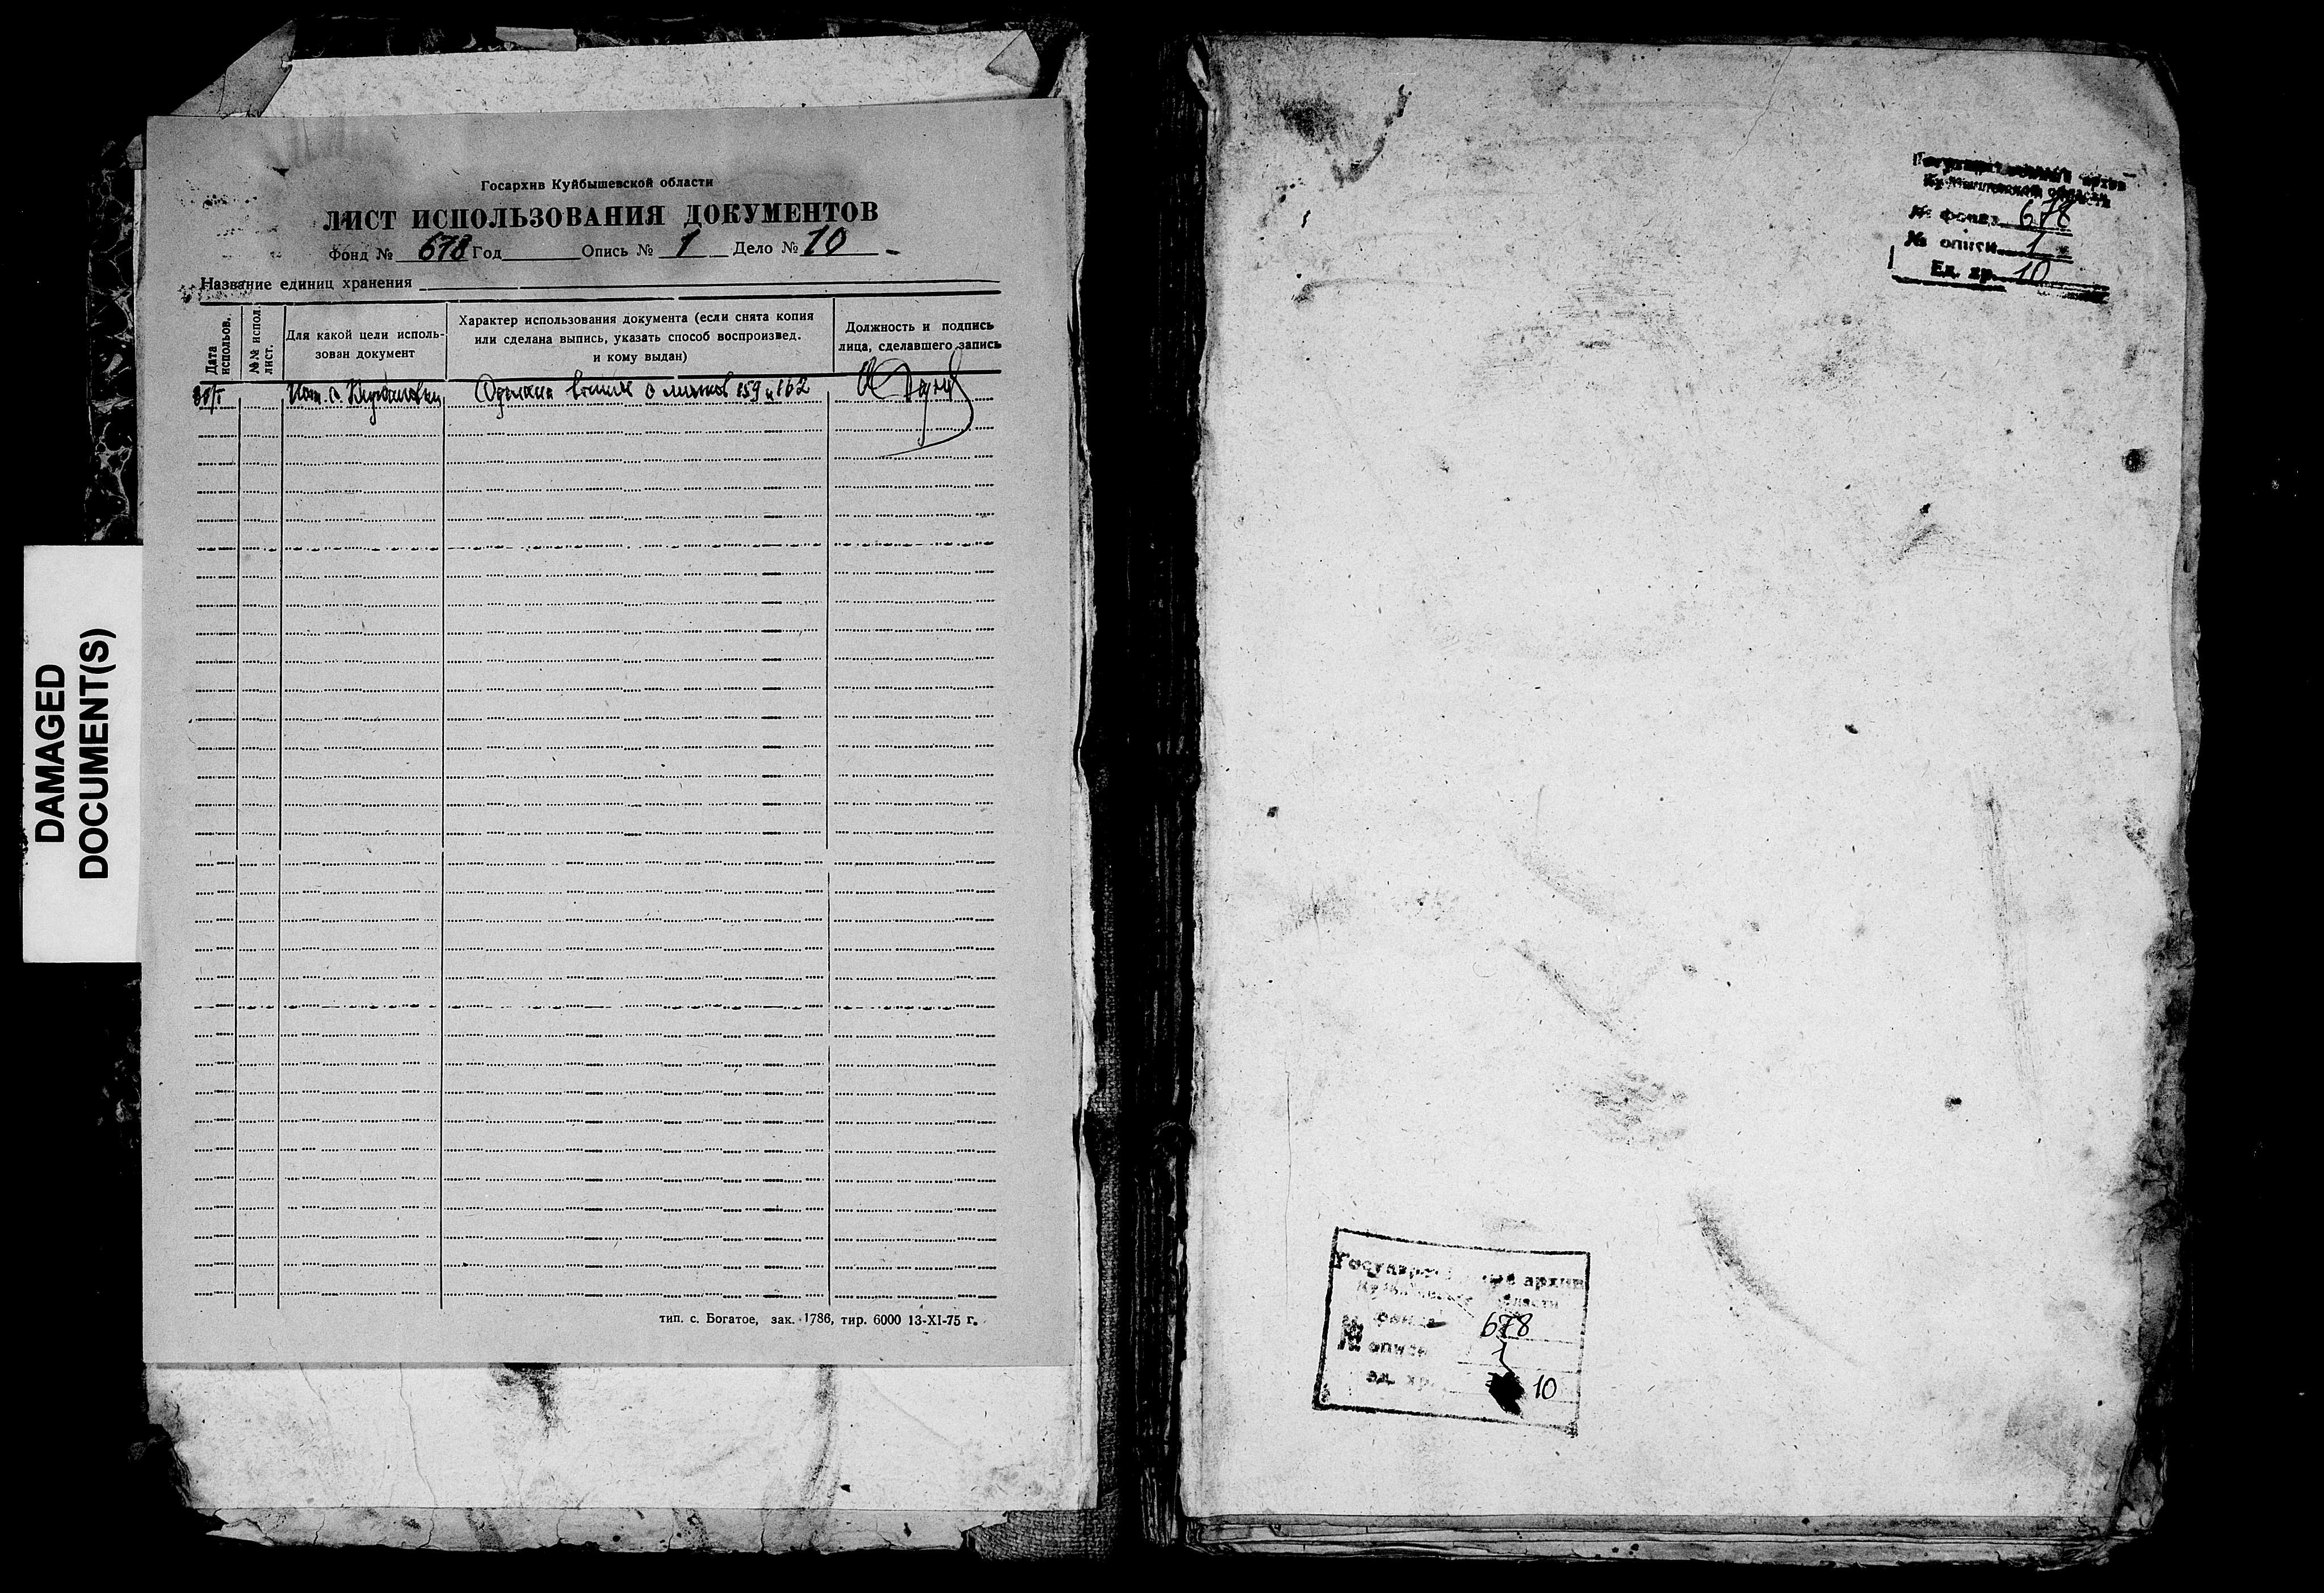 DAMAGED
DOCUMENT(S)
Госархив Куйбышевской области
ЛИСТ ИСПОЛЬЗОВАНИЯ ДОКУМЕНТОВ
Фонд № 678 Год Опись № 1 Дело № 10
Название единиц хранения
Дата использов.
№№ испол. лист.
Для какой цели исполь-
зован документ
Характер использования документа (если снята копия
или сделана выпись, указать способ воспроизвед.
и кому выдан)
Должность и подпись
лица, сделавшего запись
с листов 159 и 162
тип. с. Богатое, зак. 1786, тир. 6000 13-XI-75 г.
Государственный архив
Куйбышевской области
№ фонда 678
№ описи 1
Ед. хр. 10
Государственный архив
Куйбышевской области
№ фонда 678
№ описи 1
ед. хр. 10